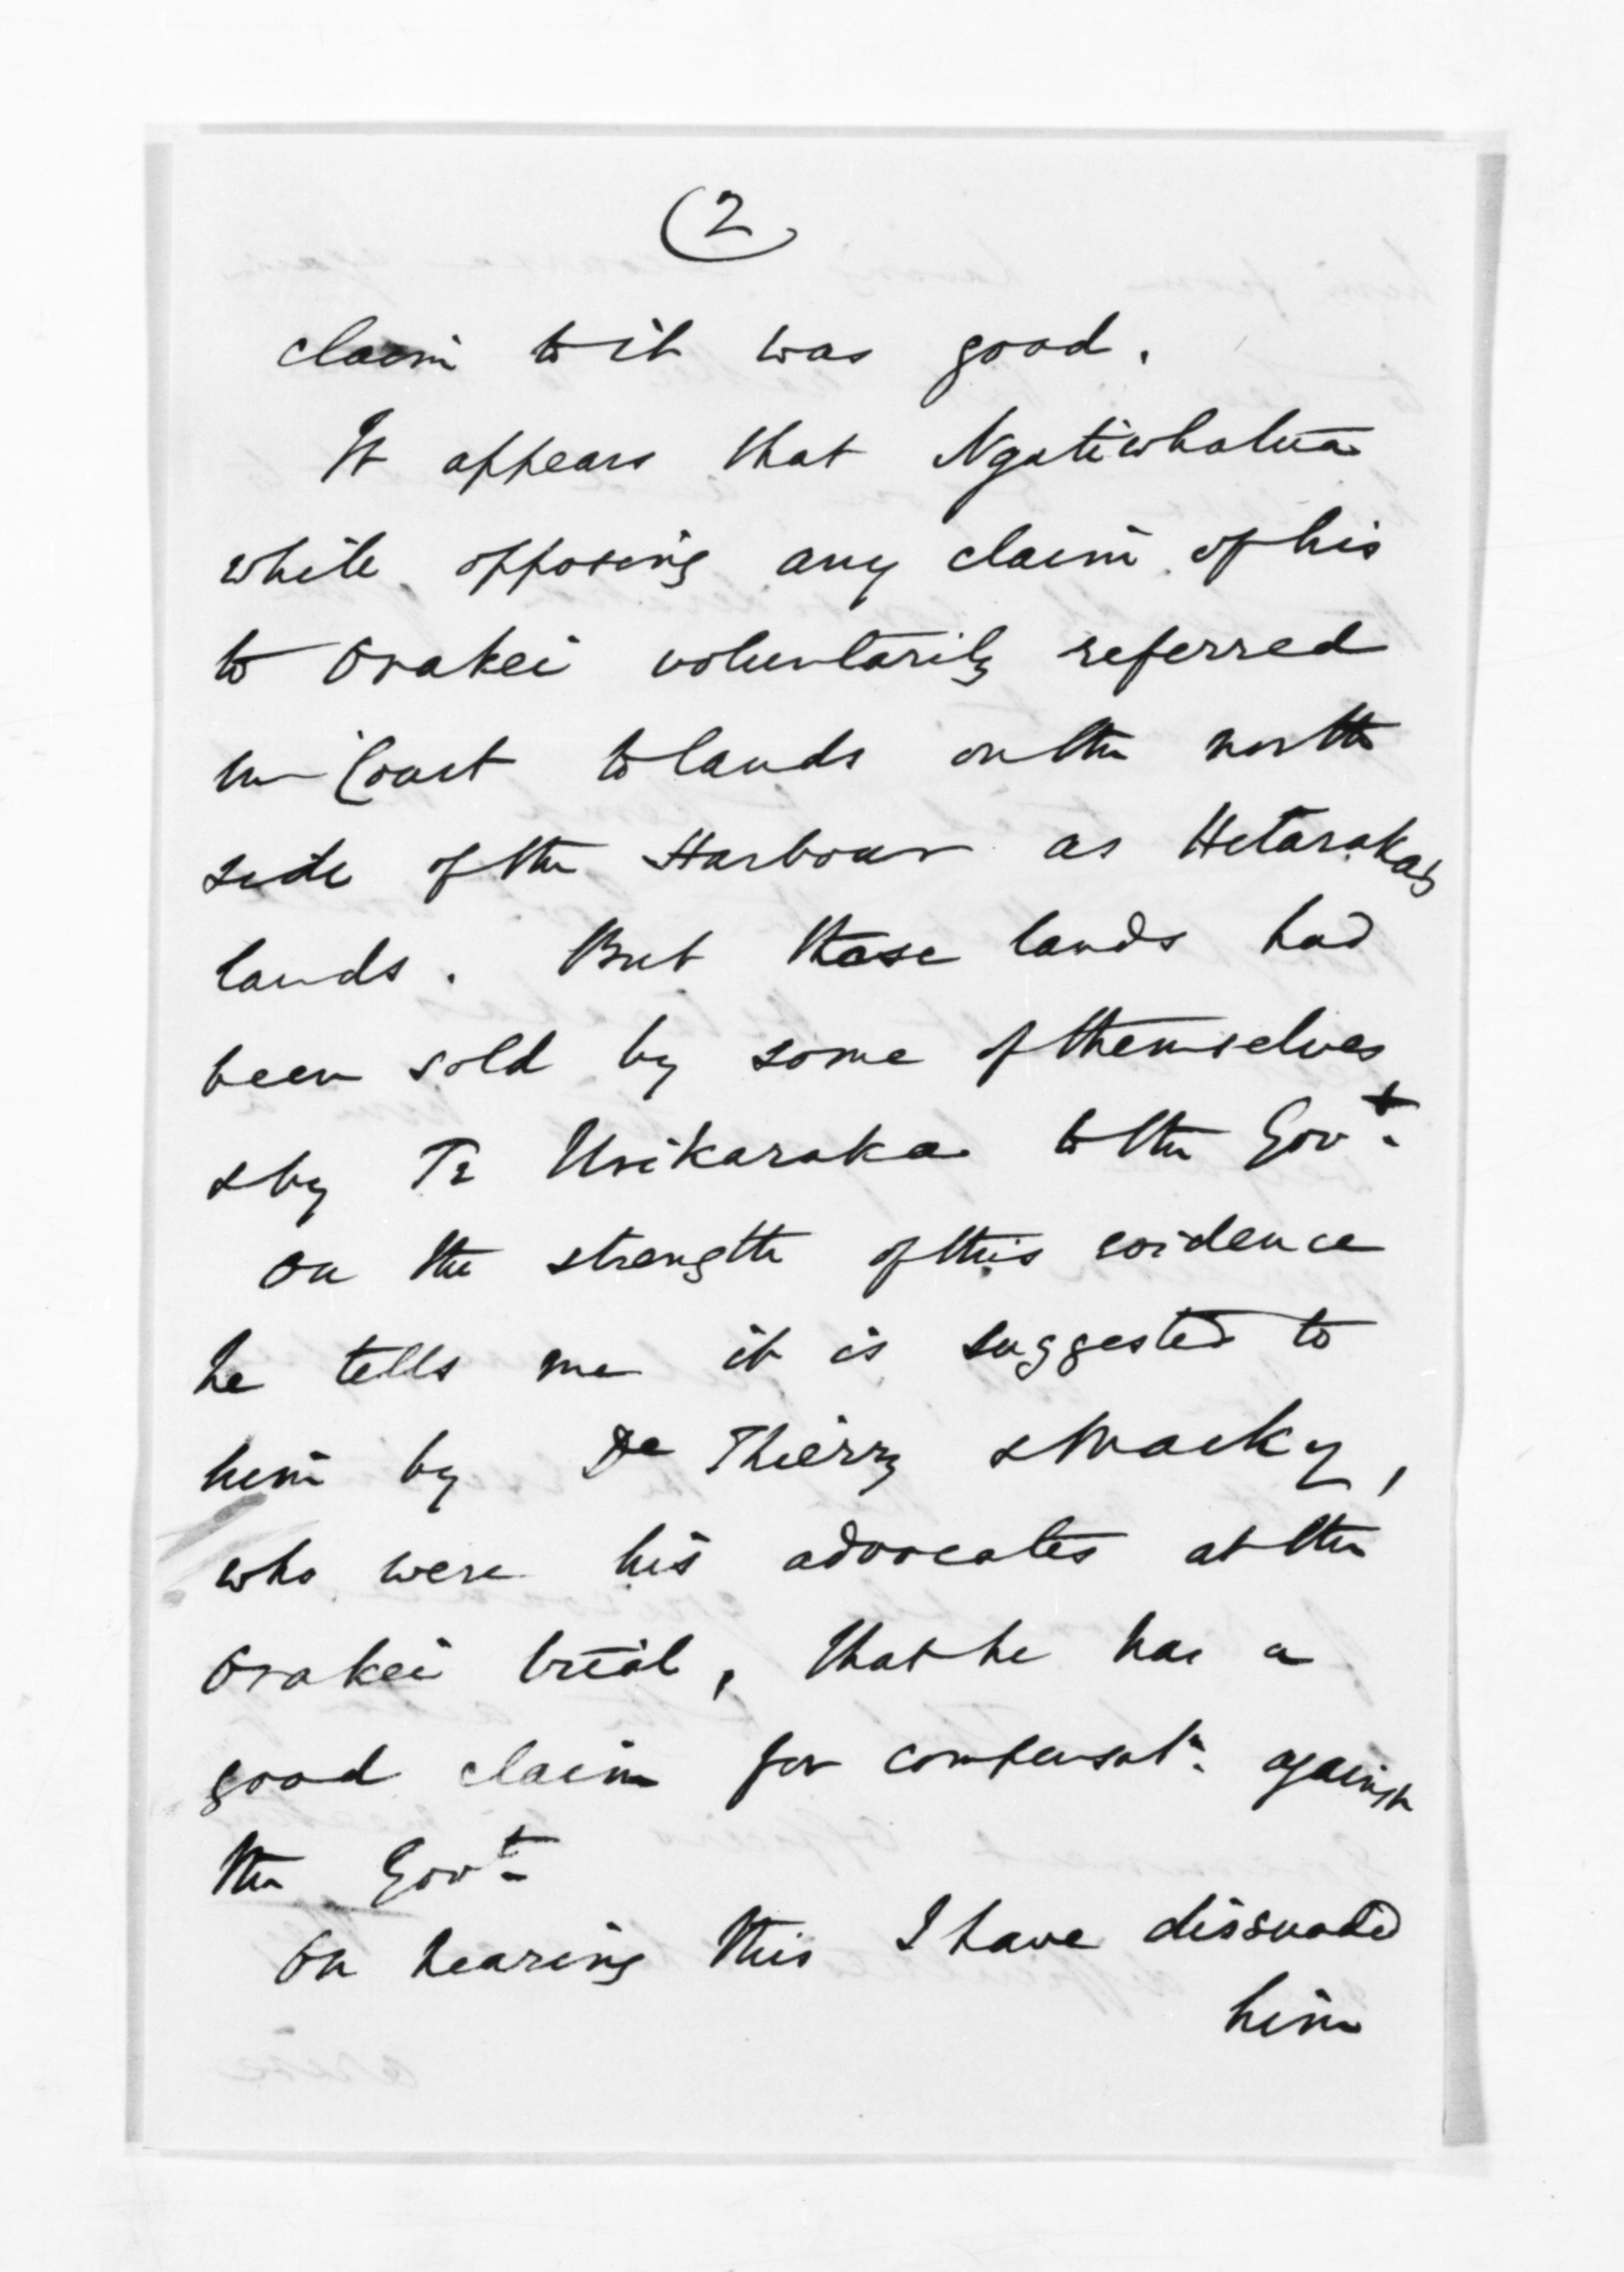 (2)
claim to it was good.
It appears that Ngatiwhatua
while opposing any claim of his
to Orakei voluntarily referred
in Court to lands on the north
side of the Harbour as Hetarakas
lands. But these lands had
been sold by some of themselves
& by Te Urikaraka to the Govt.
On the strength of this evidence
he tells me it is suggested to
him by De Thierry & Macky,
who were his advocates at the
Orakei trial, that he has a
good claim for compensatn. against
the Govt.
On hearing this I have dissuaded
him